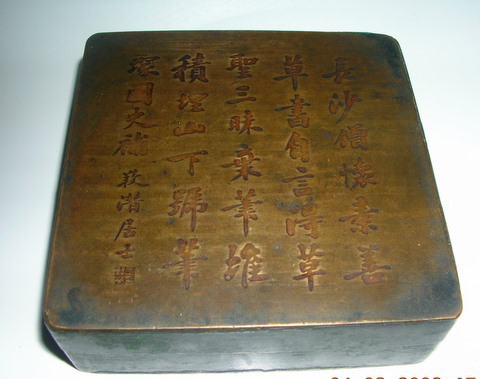 長沙僧懷素善
草書自言得草
聖三昧棄筆堆
積埋山下號筆
塚國史補 居士